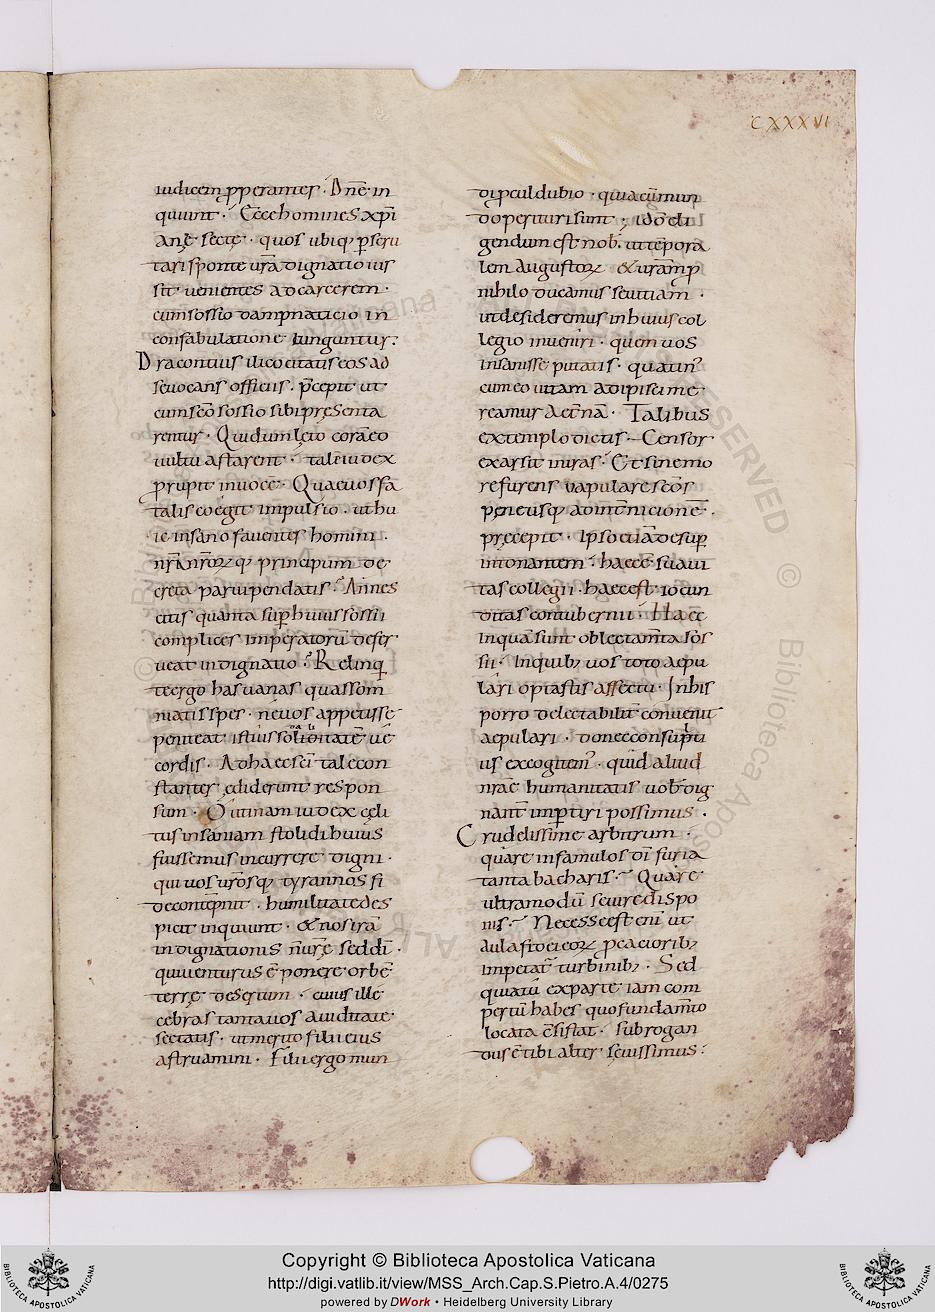 CXXXVI
iudicem ꝓperantes · Dn̄e in
quiunt · Ecce homines xp̄i
anę sectę · quos ubiqꝫ ꝑscru
tari sponte ur̄a dignatio ius
sit uenientes ad carcerem ·
cum sossio dampnaticio in
confabulatione iunguntur ·
Dracontius ilico citatis eos ad
seuocans officiis · p̄cepit ut
cum sc̄o sossio sibi presenta
rentur · Qui dum lęto corā eo
uultu astarent · talē iudex
prupit in uocē · Quae uos fa
talis coegit impulsio · ut hu
ic insano fauentes homini ·
nr̄ı nr̄orꝝ qꝫ principum de
creta paruipendatis · An nes
citis quanta suꝑ huius sossii
complices imperatorū deser
ueat indignatio · Relinqͥ
te ergo has uanas quas som
niatis spes · ne uos appetisse
peniteat istius soliditatē ue
cordis · Ad haec sc̄i tale con
stanter ędiderunt respon
sum · O utinam iudex cęli
tus insaniam stolidi huius
fuissemus incurrere digni ·
qui uos ur̄osqꝫ tyrannos si
de contēpnit · humilitate des
picit inquiunt · & nos irā
indignationis n̄urę sed dī ·
qui uenturus ē ponere orbē
terrę desertum · cuius ille
cebras tanta uos auiditate
sectatis · ut merito filii eius
astruamini · Filii ergo mun
di ꝓculdubio · quia cū mun
do perituri sunt · ido eli
gendum est nob · ut tēpora
lem augustorꝝ & ur̄am ꝓ
nihilo ducamus seuitiam ·
ut desideremus in huius col
legio inueniri · quem uos
insanisse putatis · quatin
cum eo uitam adipisci me
reamur aet̄nā · Talibus
extemplo dictis · Censor
exarsit in iras · Et sine mo
re furens uapulare sc̄os
peneusqꝫ ad int̄nicionē ·
pręcepit · Ipso etiā desuꝑ
intonantem · haec ē suaui
tas collegii · haec est iocun
ditas contubernii · Haec
inquā sunt oblectam̄ta sos
sii · In quibꝫ uos toto aepu
lari optastis affectu · In his
porro delectabilit̄ conuenit
aepulari · donec consuꝑtu
us excogitem̄ · quid aliud
nr̄ae humanitatis uob dig
nant̄ imꝑtiri possimus ·
Crudelissime arbitrum ·
quare in famulos dī furia
tanta bacharis · Quare
ultra modū seuire dispo
nis · Necesse est enī ut
aula fidei eorꝝ peccatoribꝫ
impetat̄ turbinibꝫ · Sed
quia tū ex parte iam com
pertū habes quo fundam̄to
locata c̄sistat · subrogan
dus ē tibi alter seuissimus ·
Copyright © Biblioteca Apostolica Vaticana
http://digi.vatlib.it/view/MSS_Arch.Cap.S.Pietro.A.4/0275
powered by DWork • Heidelberg University Library
BIBLIOTECA APOSTOLICA VATICANA
BIBLIOTECA APOSTOLICA VATICANA